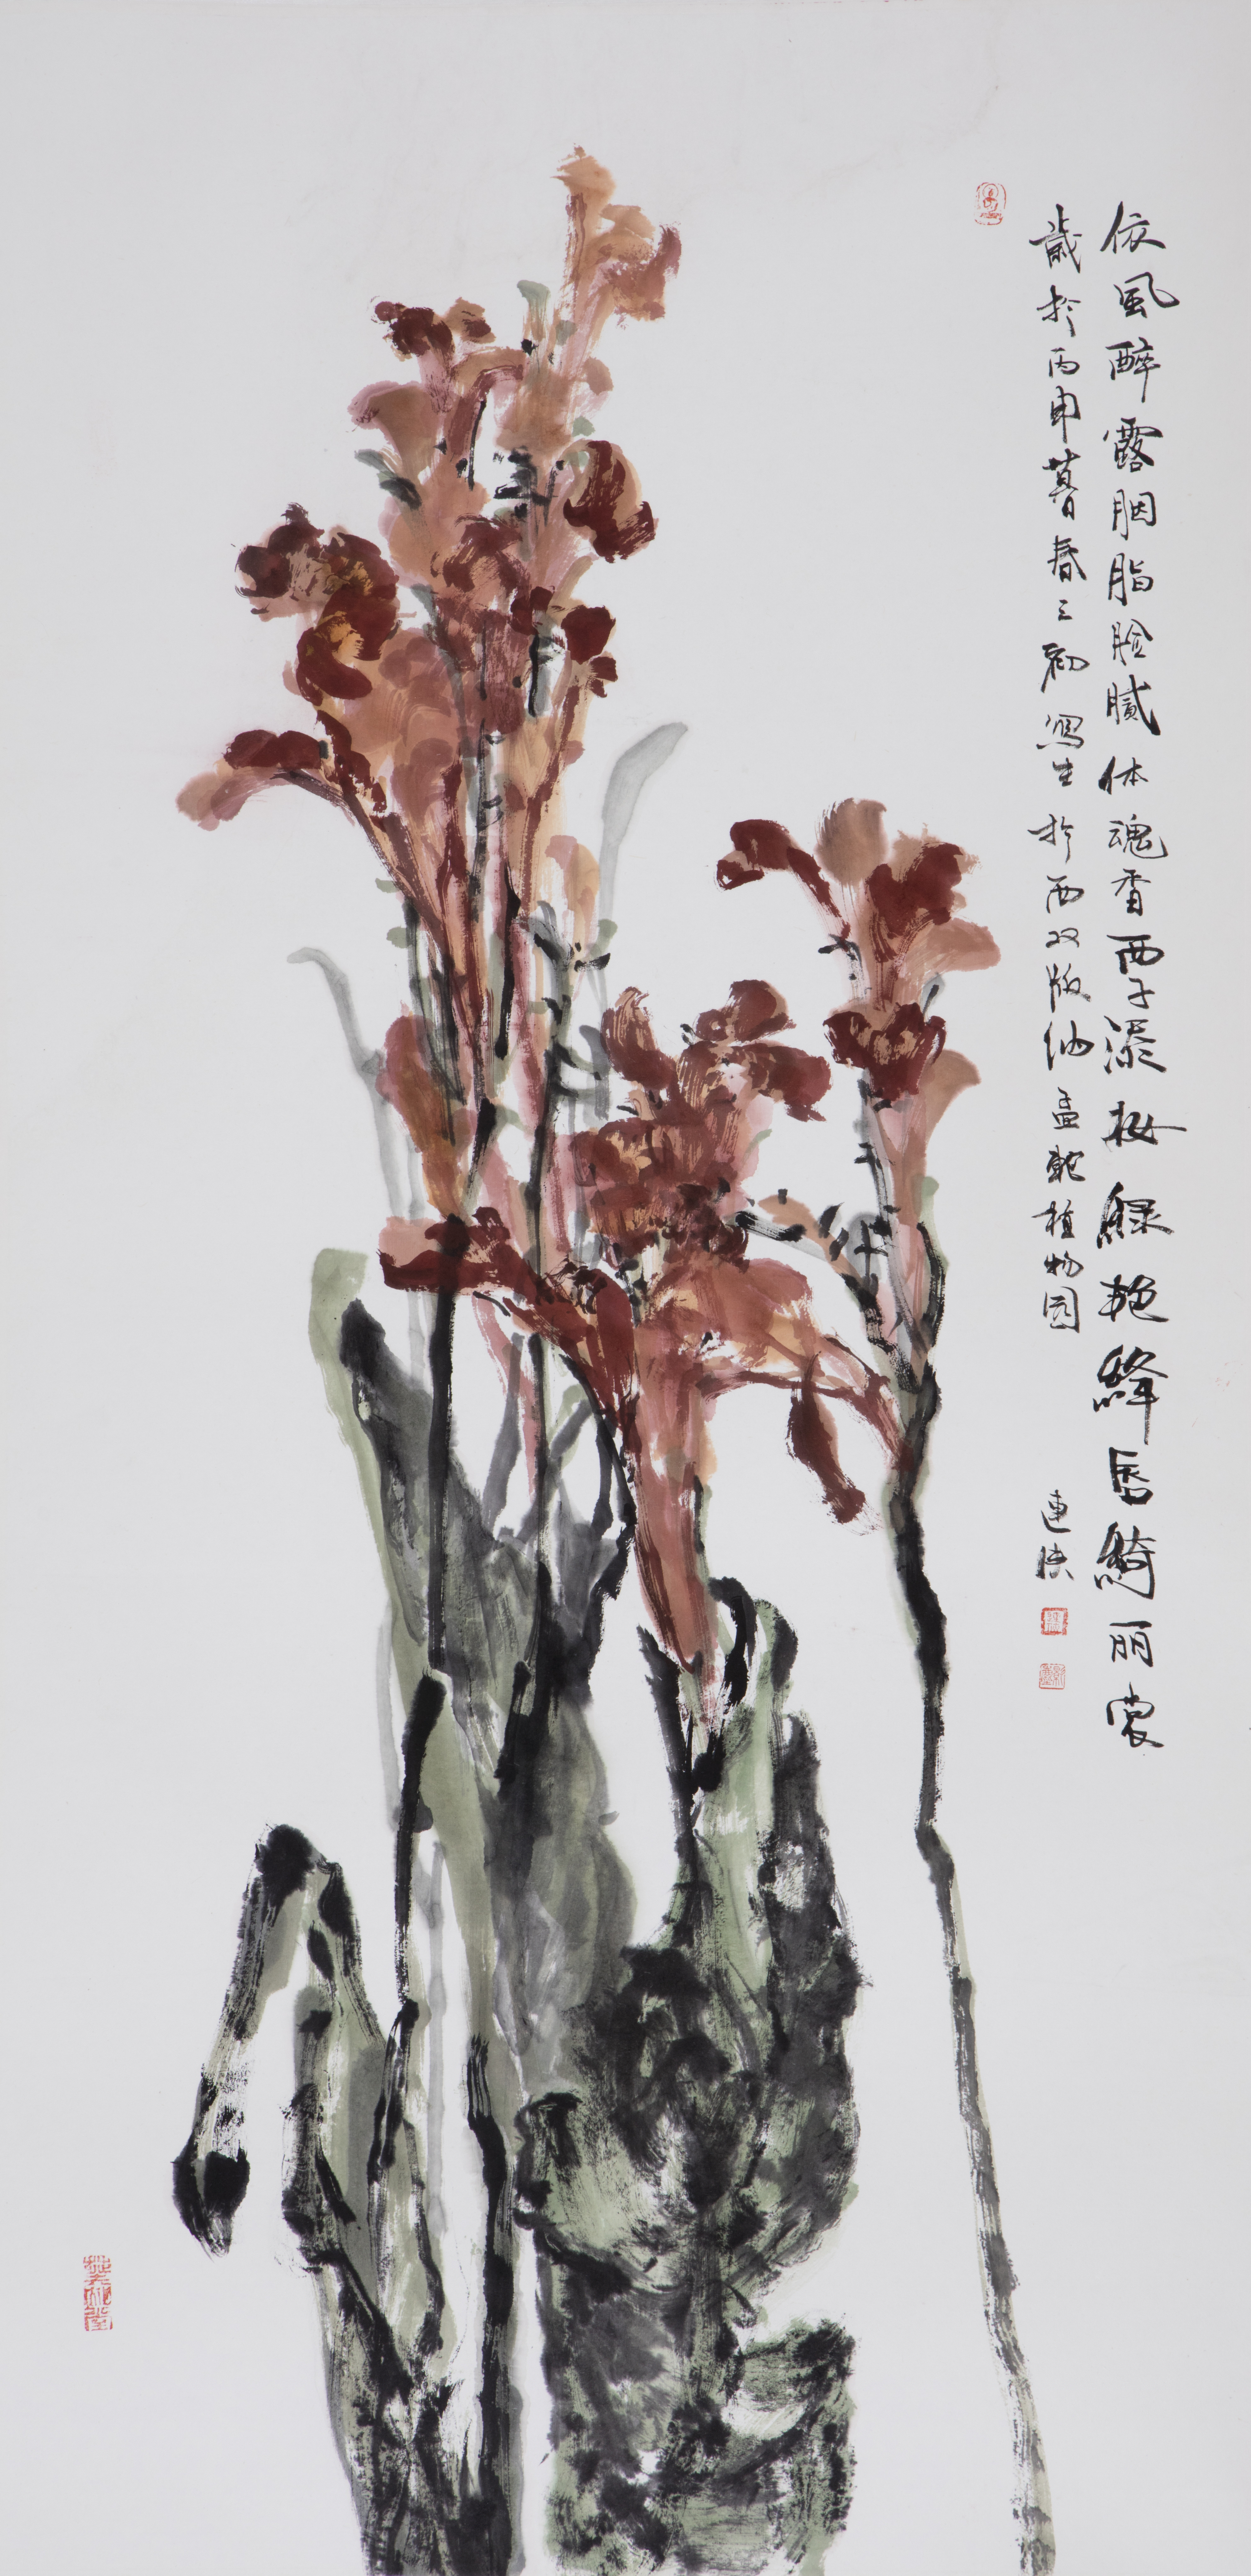 依風醉露胭脂脸腻体魂香西子添妆緑艳絳唇綺丽裳
歲於丙申暮春之初寫生於西双版纳孟植物园
連